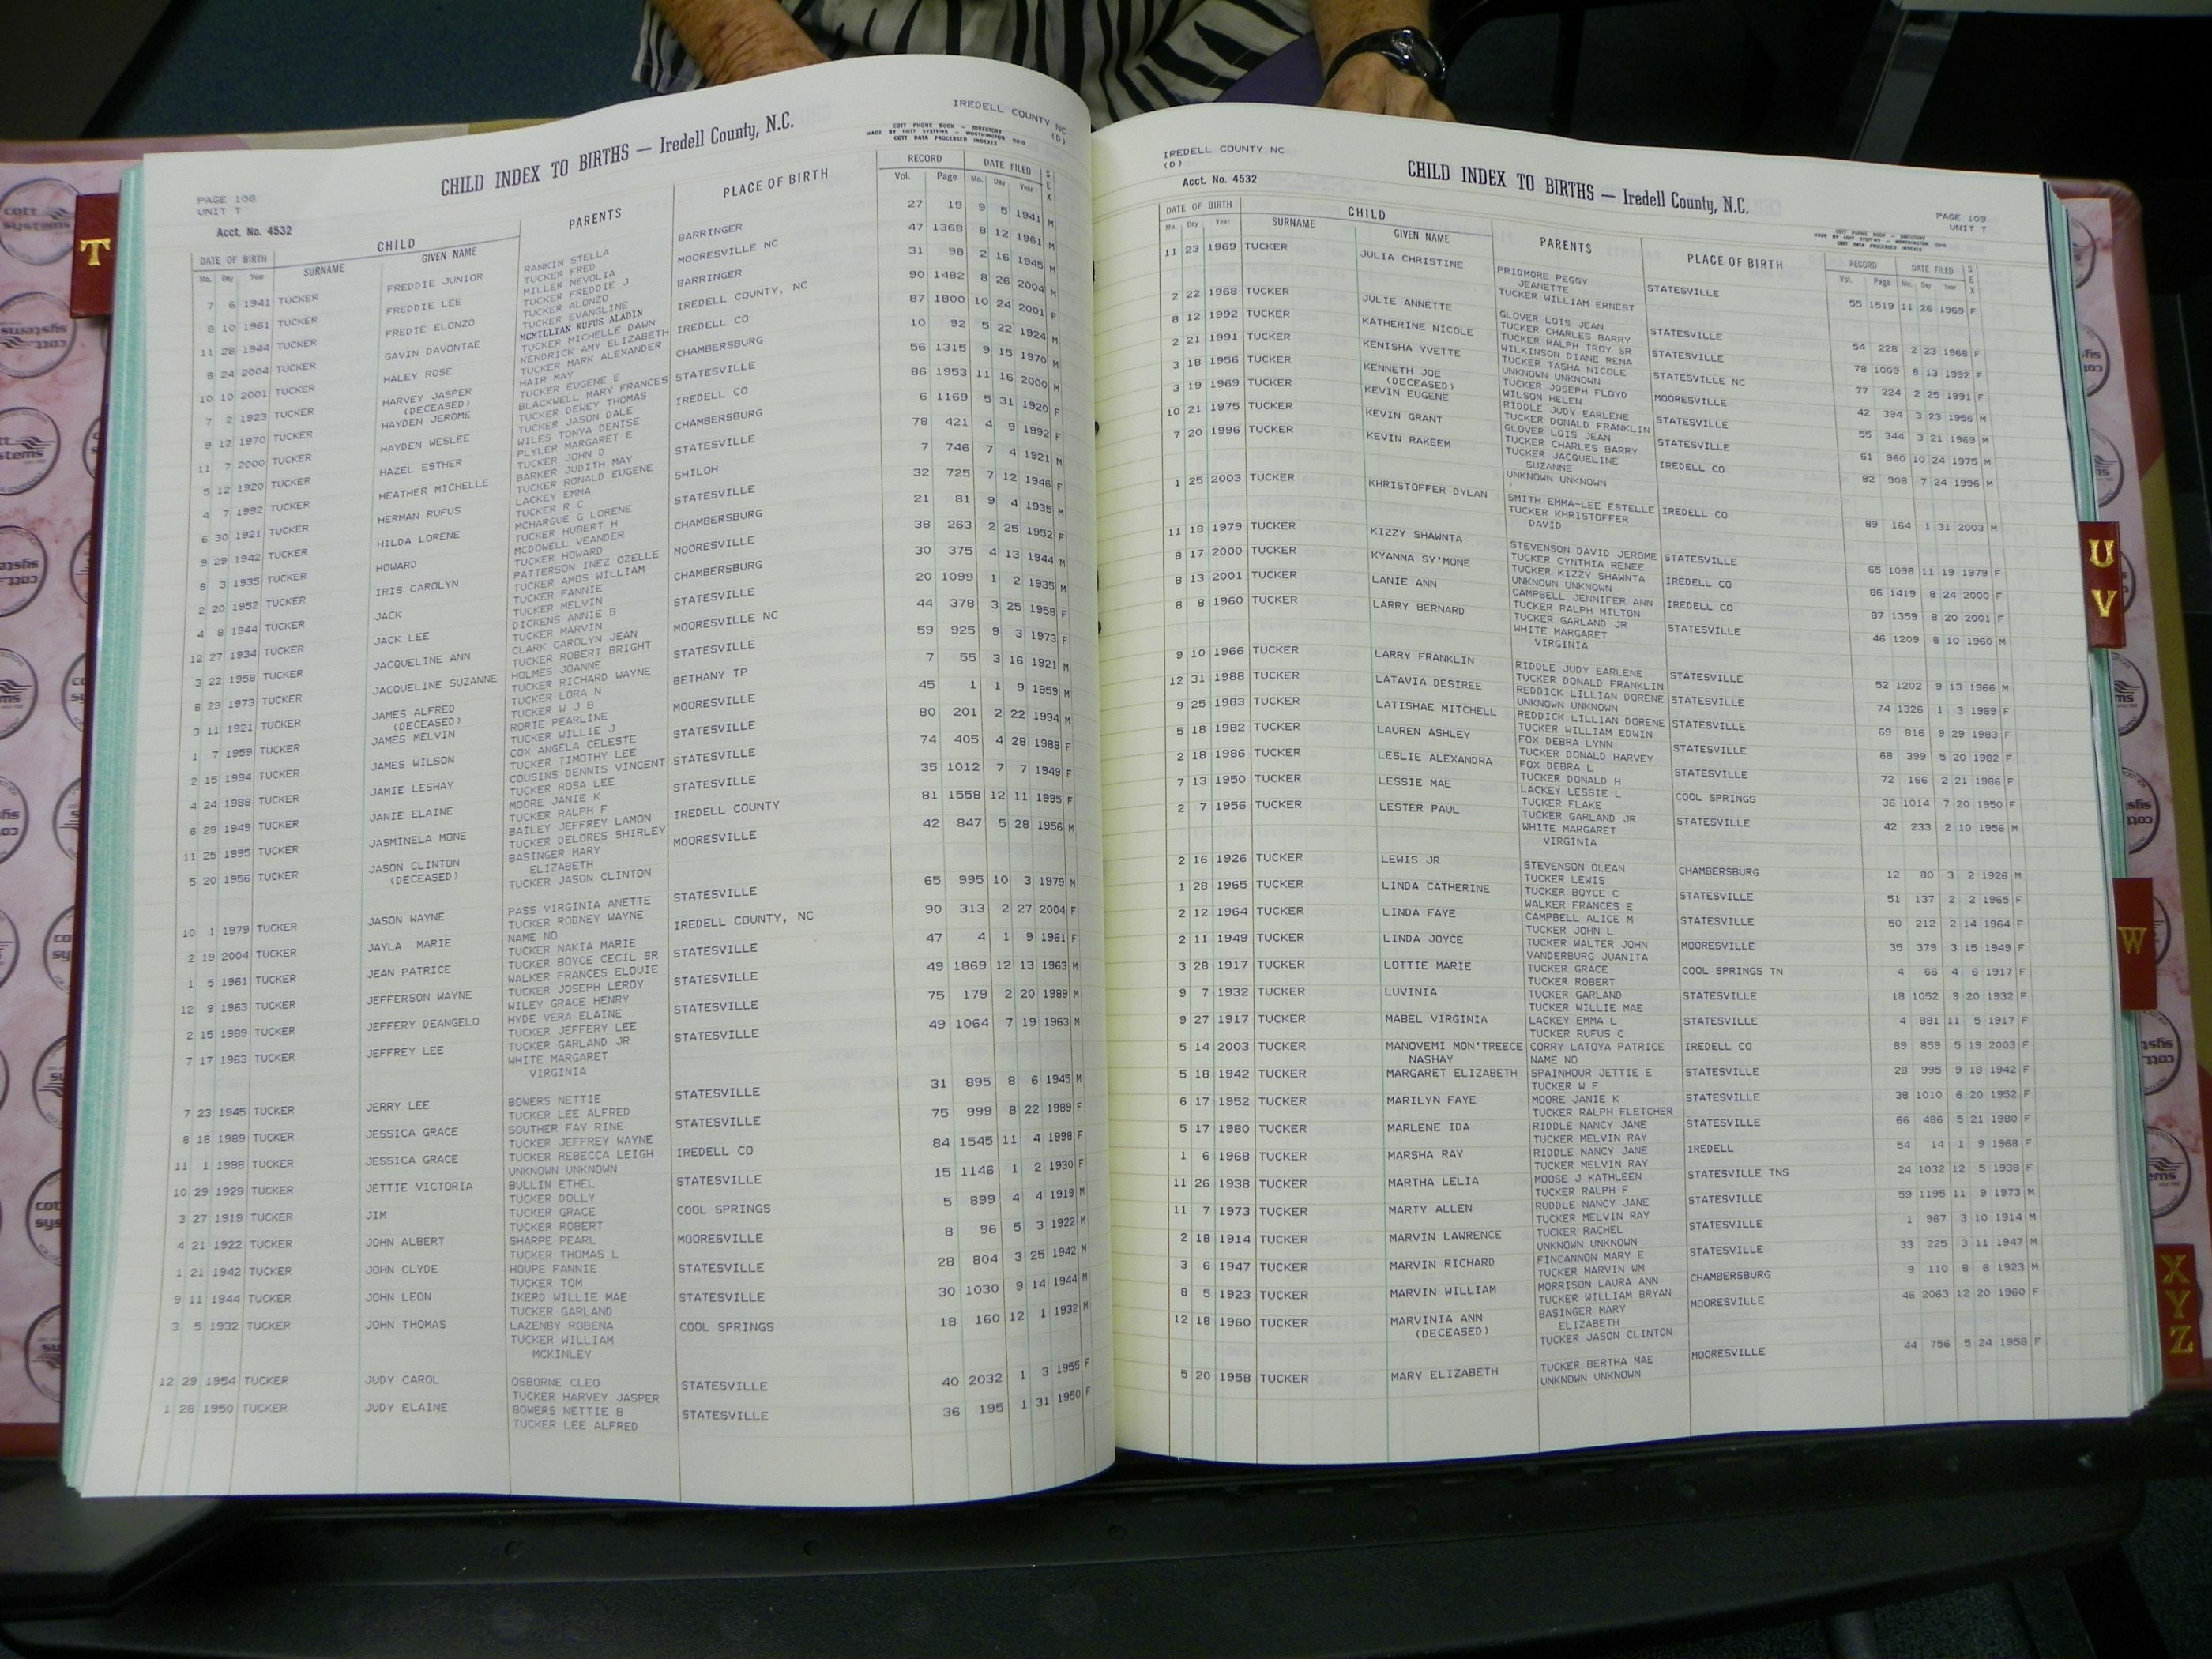 PAGE 108
UNIT T
Acct. No. 4532
CHILD INDEX TO BIRTHS — Iredell County, N.C.
IREDELL COUNTY NC
(D)
COTT PHONE BOOK — DIRECTORY
MADE BY COTT SYSTEMS — WORTHINGTON OHIO
COTT DATA PROCESSED INDEXES
DATE OF BIRTH CHILD PARENTS PLACE OF BIRTH RECORD DATE FILED SEX
Mo. Day Year SURNAME GIVEN NAME Vol. Page Mo. Day Year
7 6 1941 TUCKER FREDDIE JUNIOR RANKIN STELLA BARRINGER 27 19 9 5 1941 M
TUCKER FRED
8 10 1961 TUCKER FREDDIE LEE MILLER NEVOLIA MOORESVILLE NC 47 1368 8 12 1961 M
TUCKER FREDDIE J
11 28 1944 TUCKER FREDIE ELONZO TUCKER ALONZO BARRINGER 31 98 2 16 1945 M
TUCKER EVANGLINE
8 24 2004 TUCKER GAVIN DAVONTAE MCMILLIAN RUFUS ALADIN IREDELL COUNTY, NC 90 1482 8 26 2004 M
TUCKER MICHELLE DAWN
10 10 2001 TUCKER HALEY ROSE KENDRICK AMY ELIZABETH IREDELL CO 87 1800 10 24 2001 F
TUCKER MARK ALEXANDER
7 2 1923 TUCKER HARVEY JASPER HAIR MAY CHAMBERSBURG 10 92 5 22 1924 M
(DECEASED) TUCKER EUGENE E
9 12 1970 TUCKER HAYDEN JEROME BLACKWELL MARY FRANCES STATESVILLE 56 1315 9 15 1970 M
TUCKER DEWEY THOMAS
11 7 2000 TUCKER HAYDEN WESLEE TUCKER JASON DALE IREDELL CO 86 1953 11 16 2000 M
WILES TONYA DENISE
5 12 1920 TUCKER HAZEL ESTHER PLYLER MARGARET E CHAMBERSBURG 6 1169 5 31 1920 F
TUCKER JOHN D
4 7 1992 TUCKER HEATHER MICHELLE BARKER JUDITH MAY STATESVILLE 78 421 4 9 1992 F
TUCKER RONALD EUGENE
6 30 1921 TUCKER HERMAN RUFUS LACKEY EMMA SHILOH 7 746 7 4 1921 M
TUCKER R C
9 29 1942 TUCKER HILDA LORENE MCHARGUE G LORENE STATESVILLE 32 725 7 12 1946 F
TUCKER HUBERT H
8 3 1935 TUCKER HOWARD MCDOWELL VEANDER CHAMBERSBURG 21 81 9 4 1935 M
TUCKER HOWARD
2 20 1952 TUCKER IRIS CAROLYN PATTERSON INEZ OZELLE MOORESVILLE 38 263 2 25 1952 F
TUCKER AMOS WILLIAM
4 8 1944 TUCKER JACK TUCKER FANNIE CHAMBERSBURG 30 375 4 13 1944 M
TUCKER MELVIN
12 27 1934 TUCKER JACK LEE DICKENS ANNIE B STATESVILLE 20 1099 1 2 1935 M
TUCKER MARVIN
3 22 1958 TUCKER JACQUELINE ANN CLARK CAROLYN JEAN MOORESVILLE NC 44 378 3 25 1958 F
TUCKER ROBERT BRIGHT
8 29 1973 TUCKER JACQUELINE SUZANNE HOLMES JOANNE STATESVILLE 59 925 9 3 1973 F
TUCKER RICHARD WAYNE
3 11 1921 TUCKER JAMES ALFRED TUCKER LORA N BETHANY TP 7 55 3 16 1921 M
(DECEASED) TUCKER W J B
1 7 1959 TUCKER JAMES MELVIN RORIE PEARLINE MOORESVILLE 45 1 1 9 1959 M
TUCKER WILLIE J
2 15 1994 TUCKER JAMES WILSON COX ANGELA CELESTE STATESVILLE 80 201 2 22 1994 M
TUCKER TIMOTHY LEE
4 24 1988 TUCKER JAMIE LESHAY COUSINS DENNIS VINCENT STATESVILLE 74 405 4 28 1988 F
TUCKER ROSA LEE
6 29 1949 TUCKER JANIE ELAINE MOORE JANIE K STATESVILLE 35 1012 7 7 1949 F
TUCKER RALPH F
11 25 1995 TUCKER JASMINELA MONE BAILEY JEFFREY LAMON IREDELL COUNTY 81 1558 12 11 1995 F
TUCKER DELORES SHIRLEY
5 20 1956 TUCKER JASON CLINTON BASINGER MARY MOORESVILLE 42 847 5 28 1956 M
(DECEASED) ELIZABETH
TUCKER JASON CLINTON
10 1 1979 TUCKER JASON WAYNE PASS VIRGINIA ANETTE STATESVILLE 65 995 10 3 1979 M
TUCKER RODNEY WAYNE
2 19 2004 TUCKER JAYLA MARIE NAME NO IREDELL COUNTY, NC 90 313 2 27 2004 F
TUCKER NAKIA MARIE
1 5 1961 TUCKER JEAN PATRICE TUCKER BOYCE CECIL SR STATESVILLE 47 4 1 9 1961 F
WALKER FRANCES ELOUIE
12 9 1963 TUCKER JEFFERSON WAYNE TUCKER JOSEPH LEROY STATESVILLE 49 1869 12 13 1963 M
WILEY GRACE HENRY
2 15 1989 TUCKER JEFFERY DEANGELO HYDE VERA ELAINE STATESVILLE 75 179 2 20 1989 M
TUCKER JEFFERY LEE
7 17 1963 TUCKER JEFFREY LEE TUCKER GARLAND JR STATESVILLE 49 1064 7 19 1963 M
WHITE MARGARET
VIRGINIA
7 23 1945 TUCKER JERRY LEE BOWERS NETTIE STATESVILLE 31 895 8 6 1945 M
TUCKER LEE ALFRED
8 18 1989 TUCKER JESSICA GRACE SOUTHER FAY RINE STATESVILLE 75 999 8 22 1989 F
TUCKER JEFFREY WAYNE
11 1 1998 TUCKER JESSICA GRACE TUCKER REBECCA LEIGH IREDELL CO 84 1545 11 4 1998 F
UNKNOWN UNKNOWN
10 29 1929 TUCKER JETTIE VICTORIA BULLIN ETHEL STATESVILLE 15 1146 1 2 1930 F
TUCKER DOLLY
3 27 1919 TUCKER JIM TUCKER GRACE COOL SPRINGS 5 899 4 4 1919 M
TUCKER ROBERT
4 21 1922 TUCKER JOHN ALBERT SHARPE PEARL MOORESVILLE 8 96 5 3 1922 M
TUCKER THOMAS L
1 21 1942 TUCKER JOHN CLYDE HOUPE FANNIE STATESVILLE 28 804 3 25 1942 M
TUCKER TOM
9 11 1944 TUCKER JOHN LEON IKERD WILLIE MAE STATESVILLE 30 1030 9 14 1944 M
TUCKER GARLAND
3 5 1932 TUCKER JOHN THOMAS LAZENBY ROBENA COOL SPRINGS 18 160 12 1 1932 M
TUCKER WILLIAM
MCKINLEY
12 29 1954 TUCKER JUDY CAROL OSBORNE CLEO STATESVILLE 40 2032 1 3 1955 F
TUCKER HARVEY JASPER
1 28 1950 TUCKER JUDY ELAINE BOWERS NETTIE B STATESVILLE 36 195 1 31 1950 F
TUCKER LEE ALFRED
IREDELL COUNTY NC
(D)
Acct. No. 4532
CHILD INDEX TO BIRTHS — Iredell County, N.C.
PAGE 109
UNIT T
COTT PHONE BOOK — DIRECTORY
MADE BY COTT SYSTEMS — WORTHINGTON OHIO
COTT DATA PROCESSED INDEXES
DATE OF BIRTH CHILD PARENTS PLACE OF BIRTH RECORD DATE FILED SEX
Mo. Day Year SURNAME GIVEN NAME Vol. Page Mo. Day Year
11 23 1969 TUCKER JULIA CHRISTINE PRIDMORE PEGGY STATESVILLE 55 1519 11 26 1969 F
JEANETTE
TUCKER WILLIAM ERNEST
2 22 1968 TUCKER JULIE ANNETTE GLOVER LOIS JEAN STATESVILLE 54 228 2 23 1968 F
TUCKER CHARLES BARRY
8 12 1992 TUCKER KATHERINE NICOLE TUCKER RALPH TROY SR STATESVILLE 78 1009 8 13 1992 F
WILKINSON DIANE RENA
2 21 1991 TUCKER KENISHA YVETTE TUCKER TASHA NICOLE STATESVILLE NC 77 224 2 25 1991 F
UNKNOWN UNKNOWN
3 18 1956 TUCKER KENNETH JOE TUCKER JOSEPH FLOYD MOORESVILLE 42 394 3 23 1956 M
(DECEASED) WILSON HELEN
3 19 1969 TUCKER KEVIN EUGENE RIDDLE JUDY EARLENE STATESVILLE 55 344 3 21 1969 M
TUCKER DONALD FRANKLIN
10 21 1975 TUCKER KEVIN GRANT GLOVER LOIS JEAN STATESVILLE 61 960 10 24 1975 M
TUCKER CHARLES BARRY
7 20 1996 TUCKER KEVIN RAKEEM TUCKER JACQUELINE IREDELL CO 82 908 7 24 1996 M
SUZANNE
UNKNOWN UNKNOWN
1 25 2003 TUCKER KHRISTOFFER DYLAN SMITH EMMA-LEE ESTELLE IREDELL CO 89 164 1 31 2003 M
TUCKER KHRISTOFFER
DAVID
11 18 1979 TUCKER KIZZY SHAWNTA STEVENSON DAVID JEROME STATESVILLE 65 1098 11 19 1979 F
TUCKER CYNTHIA RENEE
8 17 2000 TUCKER KYANNA SY'MONE TUCKER KIZZY SHAWNTA IREDELL CO 86 1419 8 24 2000 F
UNKNOWN UNKNOWN
8 13 2001 TUCKER LANIE ANN CAMPBELL JENNIFER ANN IREDELL CO 87 1359 8 20 2001 F
TUCKER RALPH MILTON
8 8 1960 TUCKER LARRY BERNARD TUCKER GARLAND JR STATESVILLE 46 1209 8 10 1960 M
WHITE MARGARET
VIRGINIA
9 10 1966 TUCKER LARRY FRANKLIN RIDDLE JUDY EARLENE STATESVILLE 52 1202 9 13 1966 M
TUCKER DONALD FRANKLIN
12 31 1988 TUCKER LATAVIA DESIREE REDDICK LILLIAN DORENE STATESVILLE 74 1326 1 3 1989 F
UNKNOWN UNKNOWN
9 25 1983 TUCKER LATISHAE MITCHELL REDDICK LILLIAN DORENE STATESVILLE 69 816 9 29 1983 F
TUCKER WILLIAM EDWIN
5 18 1982 TUCKER LAUREN ASHLEY FOX DEBRA LYNN STATESVILLE 68 399 5 20 1982 F
TUCKER DONALD HARVEY
2 18 1986 TUCKER LESLIE ALEXANDRA FOX DEBRA L STATESVILLE 72 166 2 21 1986 F
TUCKER DONALD H
7 13 1950 TUCKER LESSIE MAE LACKEY LESSIE L COOL SPRINGS 36 1014 7 20 1950 F
TUCKER FLAKE
2 7 1956 TUCKER LESTER PAUL TUCKER GARLAND JR STATESVILLE 42 233 2 10 1956 M
WHITE MARGARET
VIRGINIA
2 16 1926 TUCKER LEWIS JR STEVENSON OLEAN CHAMBERSBURG 12 80 3 2 1926 M
TUCKER LEWIS
1 28 1965 TUCKER LINDA CATHERINE TUCKER BOYCE C STATESVILLE 51 137 2 2 1965 F
WALKER FRANCES E
2 12 1964 TUCKER LINDA FAYE CAMPBELL ALICE M STATESVILLE 50 212 2 14 1964 F
TUCKER JOHN L
2 11 1949 TUCKER LINDA JOYCE TUCKER WALTER JOHN MOORESVILLE 35 379 3 15 1949 F
VANDERBURG JUANITA
3 28 1917 TUCKER LOTTIE MARIE TUCKER GRACE COOL SPRINGS TN 4 66 4 6 1917 F
TUCKER ROBERT
9 7 1932 TUCKER LUVINIA TUCKER GARLAND STATESVILLE 18 1052 9 20 1932 F
TUCKER WILLIE MAE
9 27 1917 TUCKER MABEL VIRGINIA LACKEY EMMA L STATESVILLE 4 881 11 5 1917 F
TUCKER RUFUS C
5 14 2003 TUCKER MANOVEMI MON'TREECE CORRY LATOYA PATRICE IREDELL CO 89 859 5 19 2003 F
NASHAY NAME NO
5 18 1942 TUCKER MARGARET ELIZABETH SPAINHOUR JETTIE E STATESVILLE 28 995 9 18 1942 F
TUCKER W F
6 17 1952 TUCKER MARILYN FAYE MOORE JANIE K STATESVILLE 38 1010 6 20 1952 F
TUCKER RALPH FLETCHER
5 17 1980 TUCKER MARLENE IDA RIDDLE NANCY JANE STATESVILLE 66 486 5 21 1980 F
TUCKER MELVIN RAY
1 6 1968 TUCKER MARSHA RAY RIDDLE NANCY JANE IREDELL 54 14 1 9 1968 F
TUCKER MELVIN RAY
11 26 1938 TUCKER MARTHA LELIA MOOSE J KATHLEEN STATESVILLE TNS 24 1032 12 5 1938 F
TUCKER RALPH F
11 7 1973 TUCKER MARTY ALLEN RUDDLE NANCY JANE STATESVILLE 59 1195 11 9 1973 M
TUCKER MELVIN RAY
2 18 1914 TUCKER MARVIN LAWRENCE TUCKER RACHEL STATESVILLE 1 967 3 10 1914 M
UNKNOWN UNKNOWN
3 6 1947 TUCKER MARVIN RICHARD FINCANNON MARY E STATESVILLE 33 225 3 11 1947 M
TUCKER MARVIN WM
8 5 1923 TUCKER MARVIN WILLIAM MORRISON LAURA ANN CHAMBERSBURG 9 110 8 6 1923 M
TUCKER WILLIAM BRYAN
12 18 1960 TUCKER MARVINIA ANN BASINGER MARY MOORESVILLE 46 2063 12 20 1960 F
(DECEASED) ELIZABETH
TUCKER JASON CLINTON
5 20 1958 TUCKER MARY ELIZABETH TUCKER BERTHA MAE MOORESVILLE 44 756 5 24 1958 F
UNKNOWN UNKNOWN
T
U
V
W
X
Y
Z
cott
systems